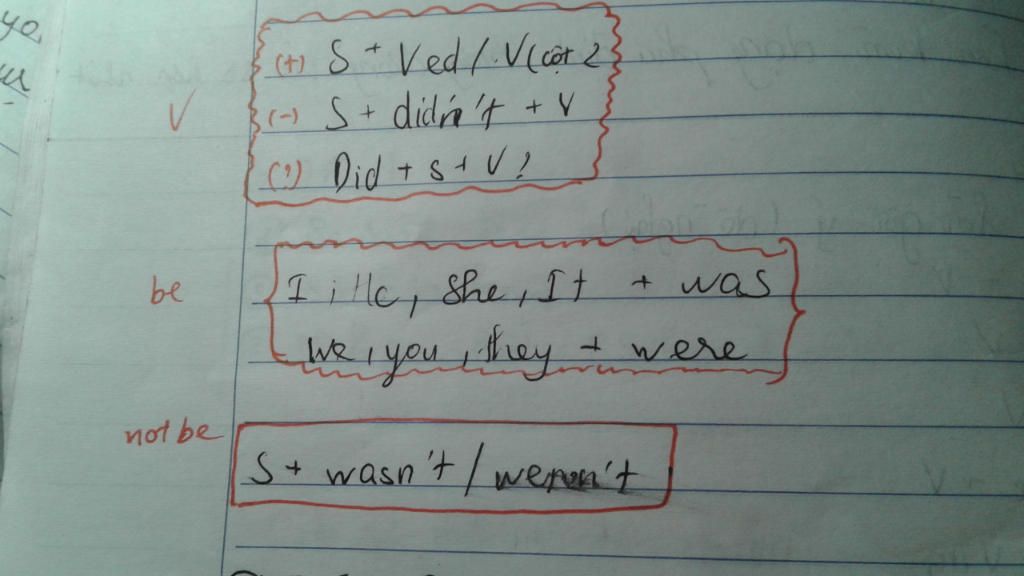 V
(+) S + Ved / V(cột 2
(-) S + didn't + V
(?) Did + S + V?
be
I, He, She, It + was
We, you, they + were
not be
S + wasn't / weren't